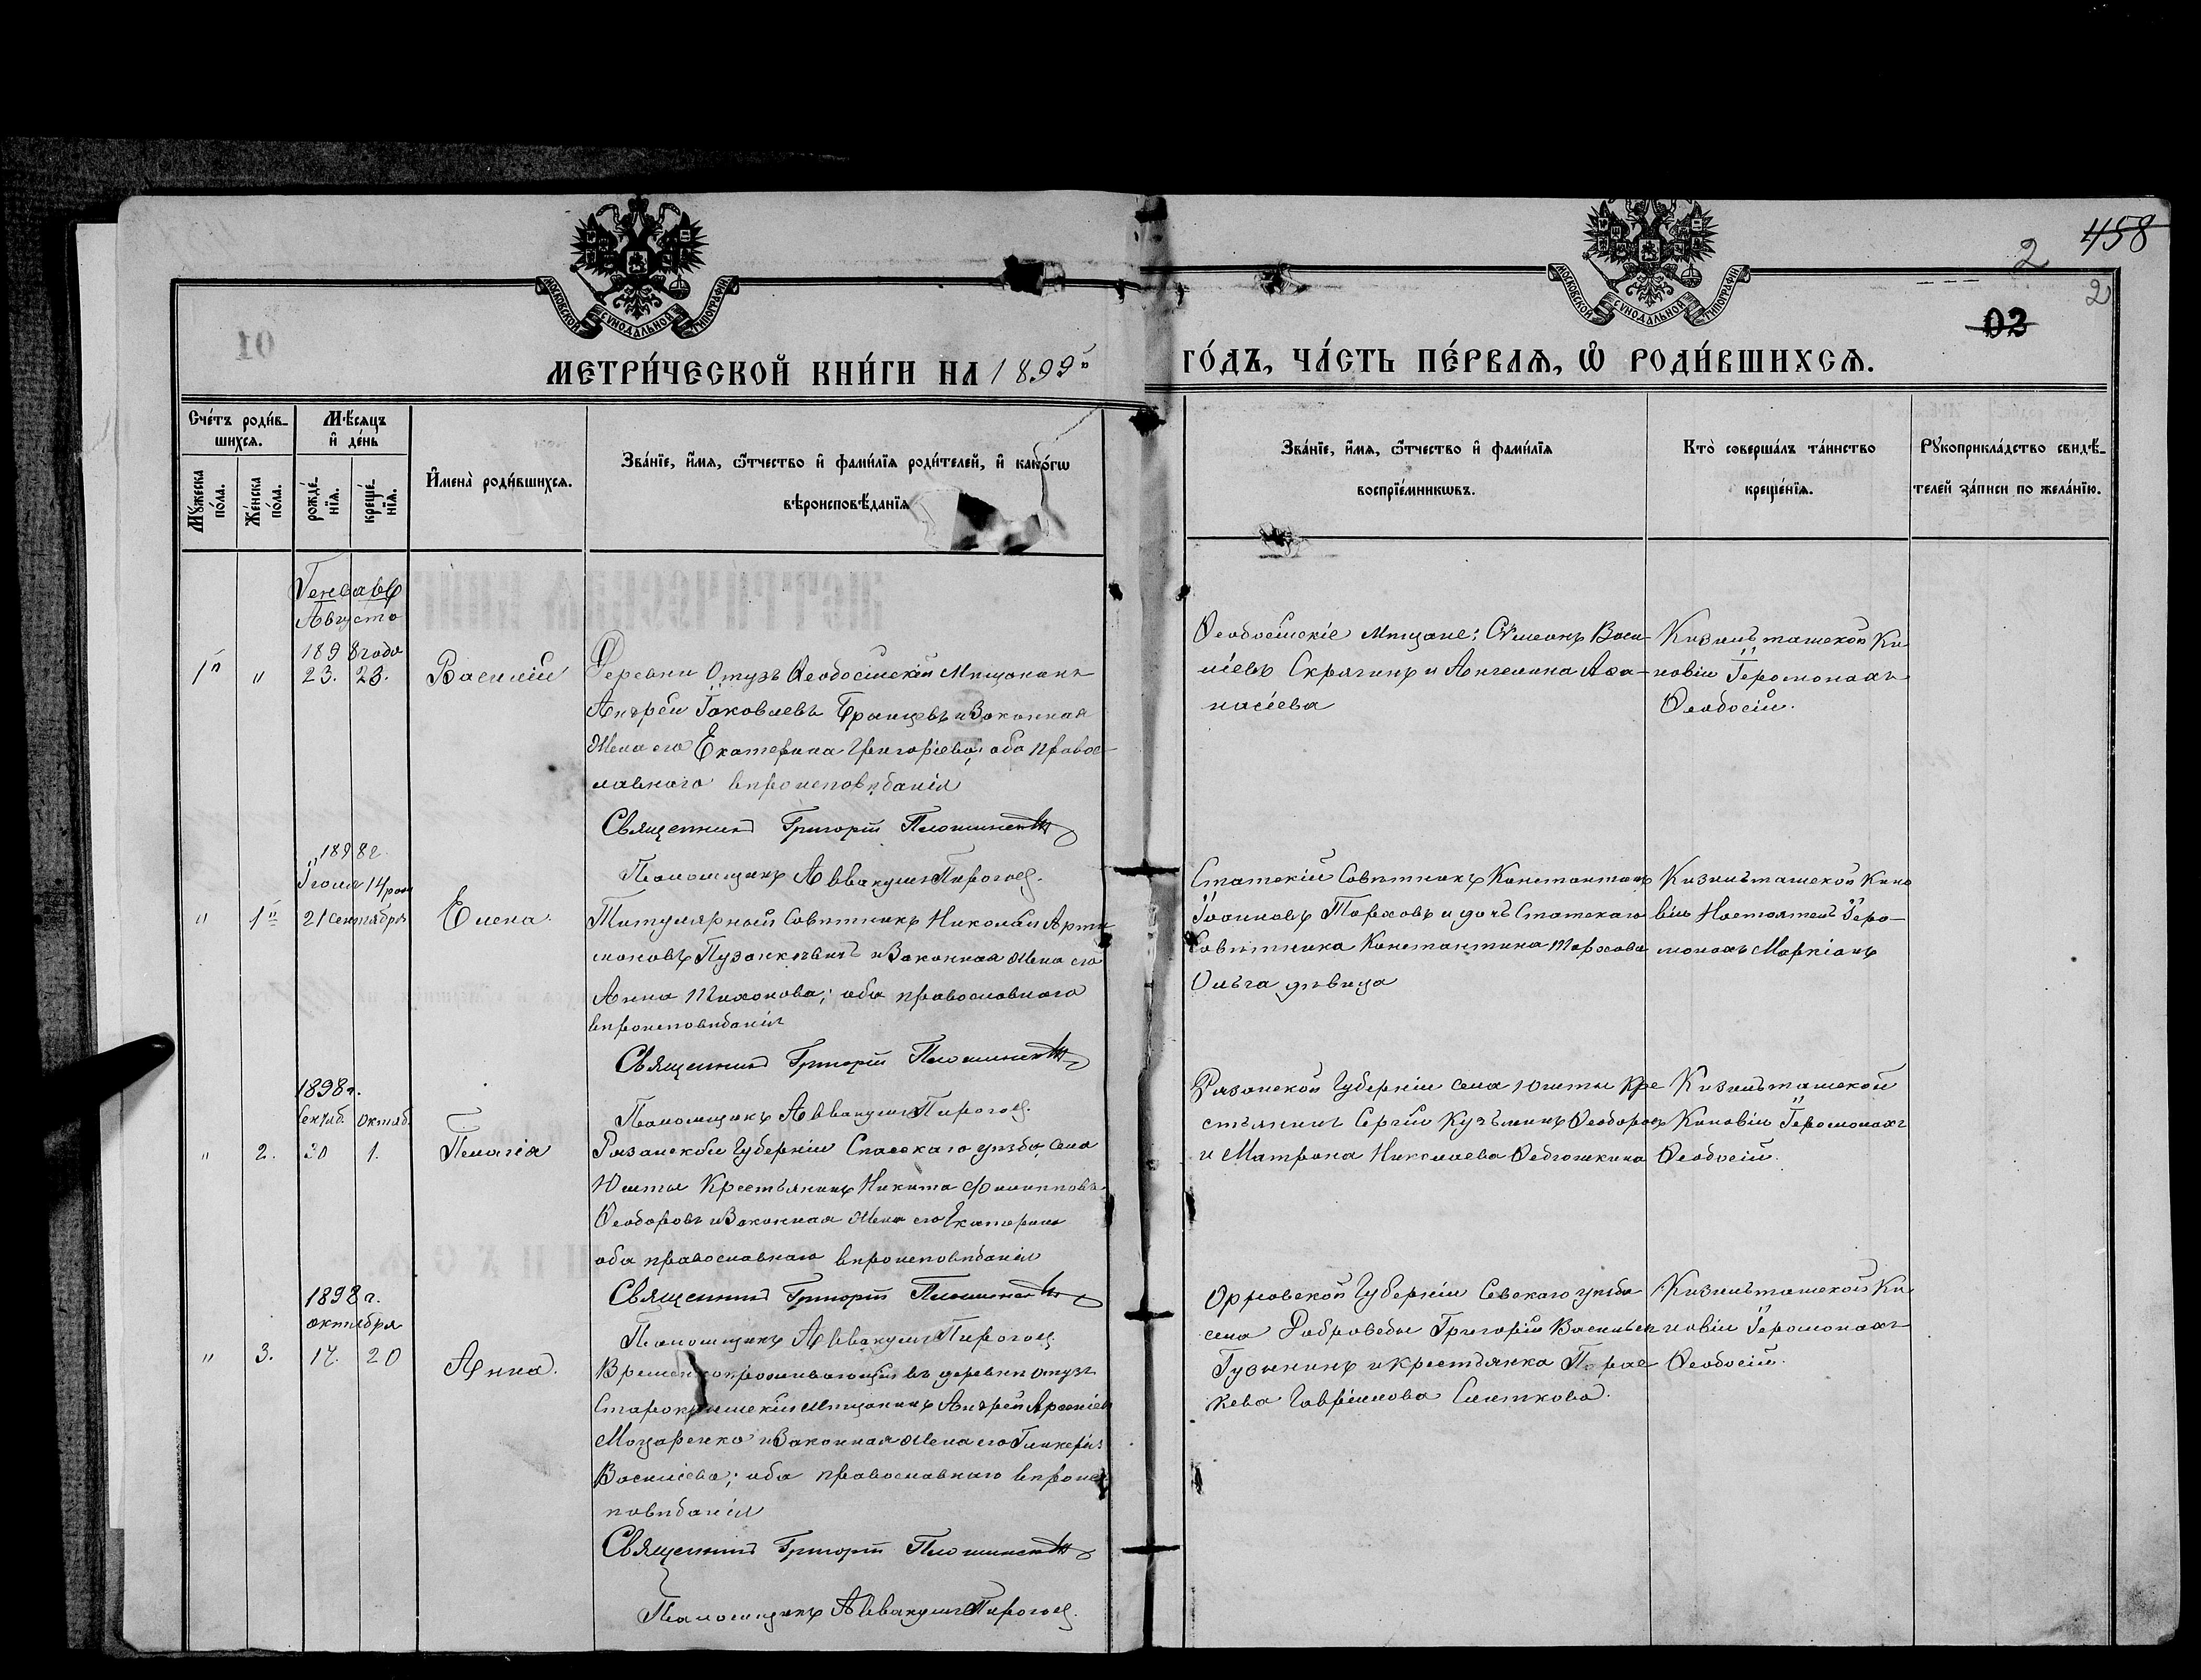 458
2
2
02
10
МОСКОВСКОЙ СУНОДАЛЬНОЙ ТИПОГРАФІИ
МОСКОВСКОЙ СУНОДАЛЬНОЙ ТИПОГРАФІИ
МЕТРИ́ЧЕСКОЙ КНИ́ГИ НА 1899й ГО́ДЪ, ЧА́СТЬ ПЕ́РВАѦ, Ѡ РОДИ́ВШИХСѦ.
Сче́тъ роди́в-
шихсѧ.
Мѣ́сѧцъ
и҆ де́нь
Мꙋжеска по́ла.
Же́нска по́ла.
рожде́-
нїѧ.
креще́-
нїѧ.
И҆мена̀ роди́вшихсѧ.
Зва́нїе, и҆́мѧ, ѻ҆́тчество и҆ фами́лїѧ роди́телей, и҆ како́гѡ
вѣроисповѣ́данїѧ
Зва́нїе, и҆́мѧ, ѻ҆́тчество и҆ фами́лїѧ
воспрїе́мникѡвъ.
Кто̀ соверша́лъ та́инство
креще́нїѧ.
Рꙋкоприкла́дство свидѣ́-
телей за́писи по жела́нїю.
Генварь
Августа
1898 года
1й " 23. 23. Василій
Деревни Отузъ Ѳеодосійскій Мѣщанинъ
Андрей Іаковлевъ Бранцевъ и Законная
Жена его Екатерина Григоріева, оба правос-
лавнаго вѣроисповѣданія
Священникъ Григорій
Псаломщикъ Аввакумъ Пироговъ.
Ѳеодосійскіе Мѣщане: Сѵмеонъ Васи-
ліевъ Скрягинъ и Ангелина Аѳа-
насіева
Кизилъташской Ки
новіи Іеромонахъ
Ѳеодосій.
1898 г.
Іюля 14 рож
" 1й 21 Сентября Елена.
Титулярный Совѣтникъ Николай Арта
моновъ Пузанкевичъ и Законная Жена его
Анна Тихонова; оба православнаго
вѣроисповѣданія
Священникъ Григорій
Псаломщикъ Аввакумъ Пироговъ.
Статскій Совѣтникъ Константинъ
Іоанновъ Тарховъ и дочь Статскаго
Совѣтника Константина Тархова
Ольга дѣвица
Кизилъташской Кино
віи Настоятель Іеро-
монахъ Маркіанъ
1898 г.
Сентяб. Октяб.
" 2. 30 1. Пелагія
Рязанской Губерніи Спасскаго уѣзда, села
Юшты Крестьянинъ Никита Филипповъ
Ѳеодоровъ и Законная Жена его Екатерина
оба православнаго вѣроисповѣданія
Священникъ Григорій
Псаломщикъ Аввакумъ Пироговъ
Рязанской Губерніи села Юшты Кре
стьянинъ Сергій Кузьминъ Ѳеодоровъ
и Матрона Николаева Ѳедюшкина
Кизилъташской
Киновіи Іеромонахъ
Ѳеодосій.
1898 г.
октября
" 3. 17. 20 Анна.
Временнопроживающій въ деревни Отузъ
Старокрымскій Мѣщанинъ Андрей Арсеніевъ
Моцаренко и Законная Жена его Гликерія
Василіева; оба православнаго вѣроис
повѣданія
Священникъ Григорій
Псаломщикъ Аввакумъ Пироговъ.
Орловской Губерніи Севскаго уѣзда
села Доброводы Григорій Васильев
Гузынинъ и крестьянка Парас
кева Гавріилова Сляткова.
Кизилъташской Ки
новіи Іеромонахъ
Ѳеодосій.